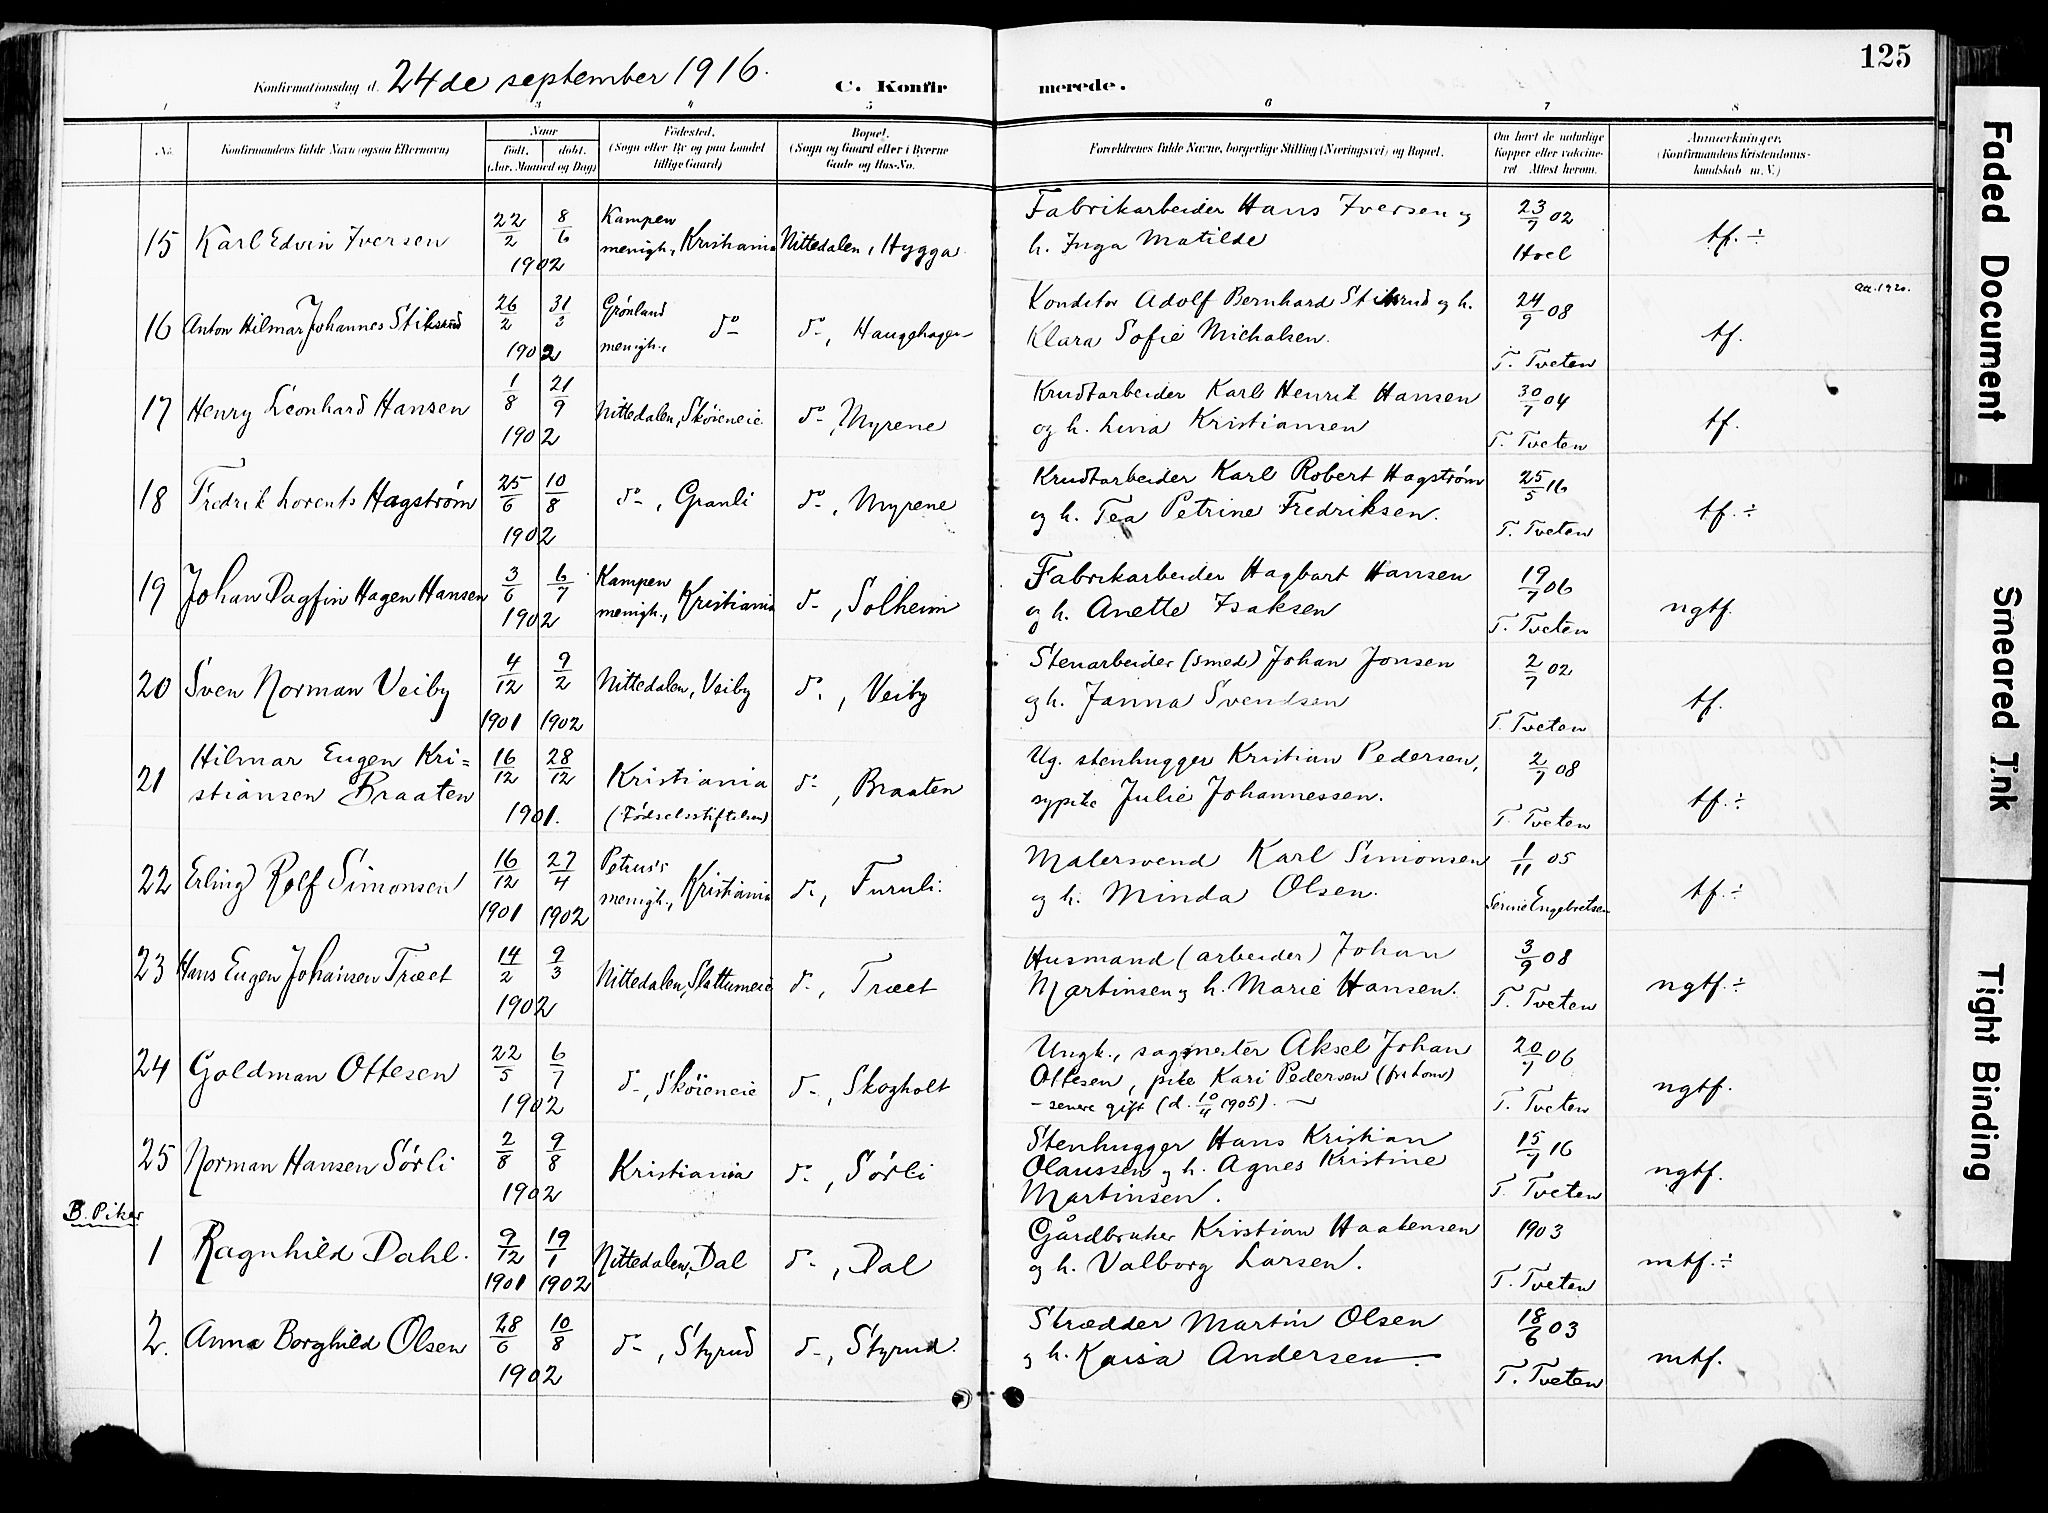 125
Konfirmationsdag d. 24de september 1916.
C. Konfirmerede.
1 2 3 4 5 6 7 8
No. Konfirmandens fulde Navn (ogsaa Efternavn) Naar født. døbt. (Aar, Maaned og Dag) Fødested. (Sogn eller By og paa Landet tillige Gaard) Bopæl. (Sogn og Gaard eller i Byerne Gade og Hus-No. Forældrenes fulde Navne, borgerlige Stilling (Næringsvei) og Bopæl. Om havt de naturlige Kopper eller vakcineret Attest herom. Anmærkninger. (Konfirmandens Kristendomskundskab m. V.)
15 Karl Edvin Iversen 22/2 8/6 1902 Kampen menigh., Kristiania Nittedalen, Hygga Fabrikarbeider Hans Iversen og h. Inga Matilde 23/7 02 Hoel tf. ÷
16 Anton Hilmar Johannes Stiksrud 26/2 31/3 1902 Grønland menigh., do do, Haugehagen Konditor Adolf Bernhard Stiksrud og h. Klara Sofie Michalsen. 24/9 08 T. Tveten tf. 1920.
17 Henry Leonhard Hansen 1/8 21/9 1902 Nittedalen, Skøieneie do, Myrene Krudtarbeider Karl Henrik Hansen og h. Livia Kristiansen 30/7 04 T. Tveten tf.
18 Fredrik Lorents Hagstrøm 25/6 10/8 1902 do, Granli do, Myrene Krudtarbeider Karl Robert Hagstrøm og h. Tea Petrine Fredriksen. 25/5 16 T. Tveten tf. ÷
19 Johan Dagfin Hagen Hansen 3/6 6/7 1902 Kampen menigh., Kristiania do, Solheim Fabrikarbeider Hagbart Hansen og h. Anette Isaksen 19/7 06 T. Tveten ngtf.
20 Sven Norman Veiby 4/12 1901 9/2 1902 Nittedalen, Veiby do, Veiby Stenarbeider (smed) Johan Jonsen og h. Janna Svendsen 2/7 02 T. Tveten tf.
21 Hilmar Eugen Kri=stiansen Braaten 16/12 28/12 1901. Kristiania (Fødselsstiftelsen) do, Braaten Ug. stenhugger Kristian Pedersen, sypike Julie Johannessen. 2/7 08 T. Tveten tf. ÷
22 Erling Rolf Simonsen 16/12 1901 27/4 1902 Petrus's menigh., Kristiania do, Furuli. Malersvend Karl Simonsen og h. Minda Olsen. 1/11 05 Serine Engebretsen tf. ÷
23 Hans Eugen Johansen Træet 14/2 9/3 1902 Nittedalen, Slattumeie do, Træet Husmand (arbeider) Johan Martinsen og h. Marie Hansen. 3/9 08 T. Tveten ngtf. ÷
24 Goldman Ottesen 22/5 6/7 1902 do, Skøieneie do, Skogholt Ungk., sagmester Aksel Johan Ottesen, pike Kari Pedersen - senere gift (d. 10/4 1905). 20/7 06 T. Tveten ngtf.
25 Norman Hansen Sørli 2/8 9/8 1902 Kristiania do, Sørli Stenhugger Hans Kristian Olaussen og h. Agnes Kristine Martinsen. 15/7 16 T. Tveten ngtf.
B. Piker
1 Ragnhild Dahl. 9/12 1901 19/1 1902 Nittedalen, Dal do, Dal Gårdbruker Kristian Haakensen og h. Valborg Larsen. 1903 T. Tveten mtf. ÷
2. Anna Borghild Olsen 28/6 10/8 1902 do, Styrud do, Styrud. Skrædder Martin Olsen og h. Kaisa Andersen. 18/6 03 T. Tveten mtf.
Faded Document
Smeared Ink
Tight Binding